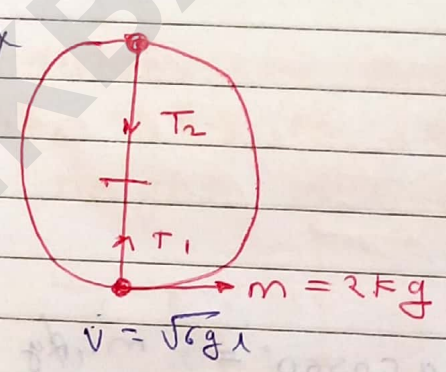 T₂
T₁
m = 2kg
v = √6gl